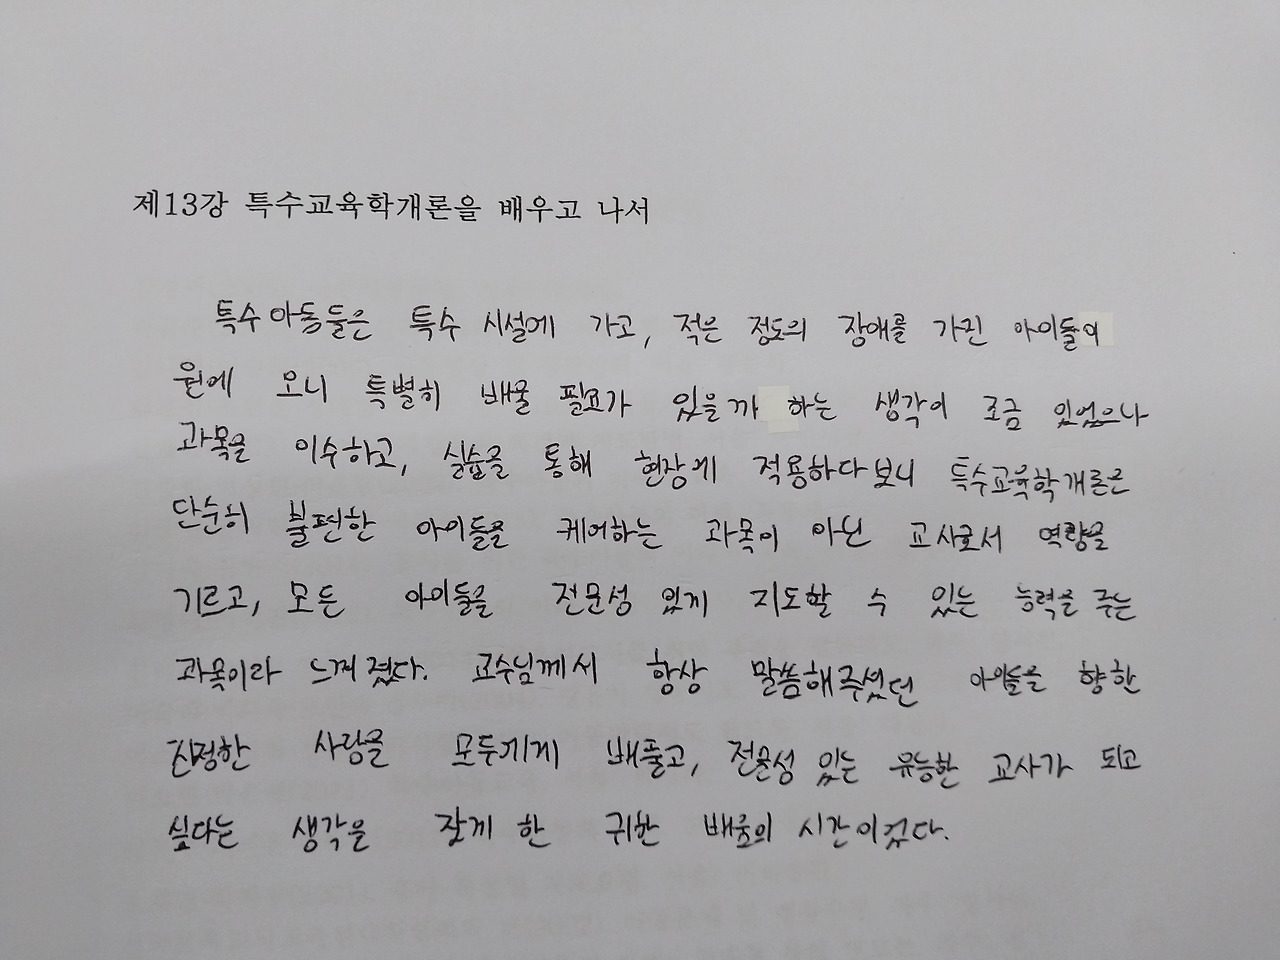 제13강 특수교육학개론을 배우고 나서
특수아동들은 특수 시설에 가고, 적은 정도의 장애를 가진 아이들이
원에 오니 특별히 배울 필요가 있을까 하는 생각이 조금 있었으나
과목을 이수하고, 실습을 통해 현장에 적용하다보니 특수교육학개론은
단순히 불편한 아이들을 케어하는 과목이 아닌 교사로서 역량을
기르고, 모든 아이들을 전문성 있게 지도할 수 있는 능력을 주는
과목이라 느껴졌다. 교수님께서 항상 말씀해주셨던 아이들을 향한
진정한 사랑을 모두에게 베풀고, 전문성 있는 유능한 교사가 되고
싶다는 생각을 갖게 한 귀한 배움의 시간이었다.